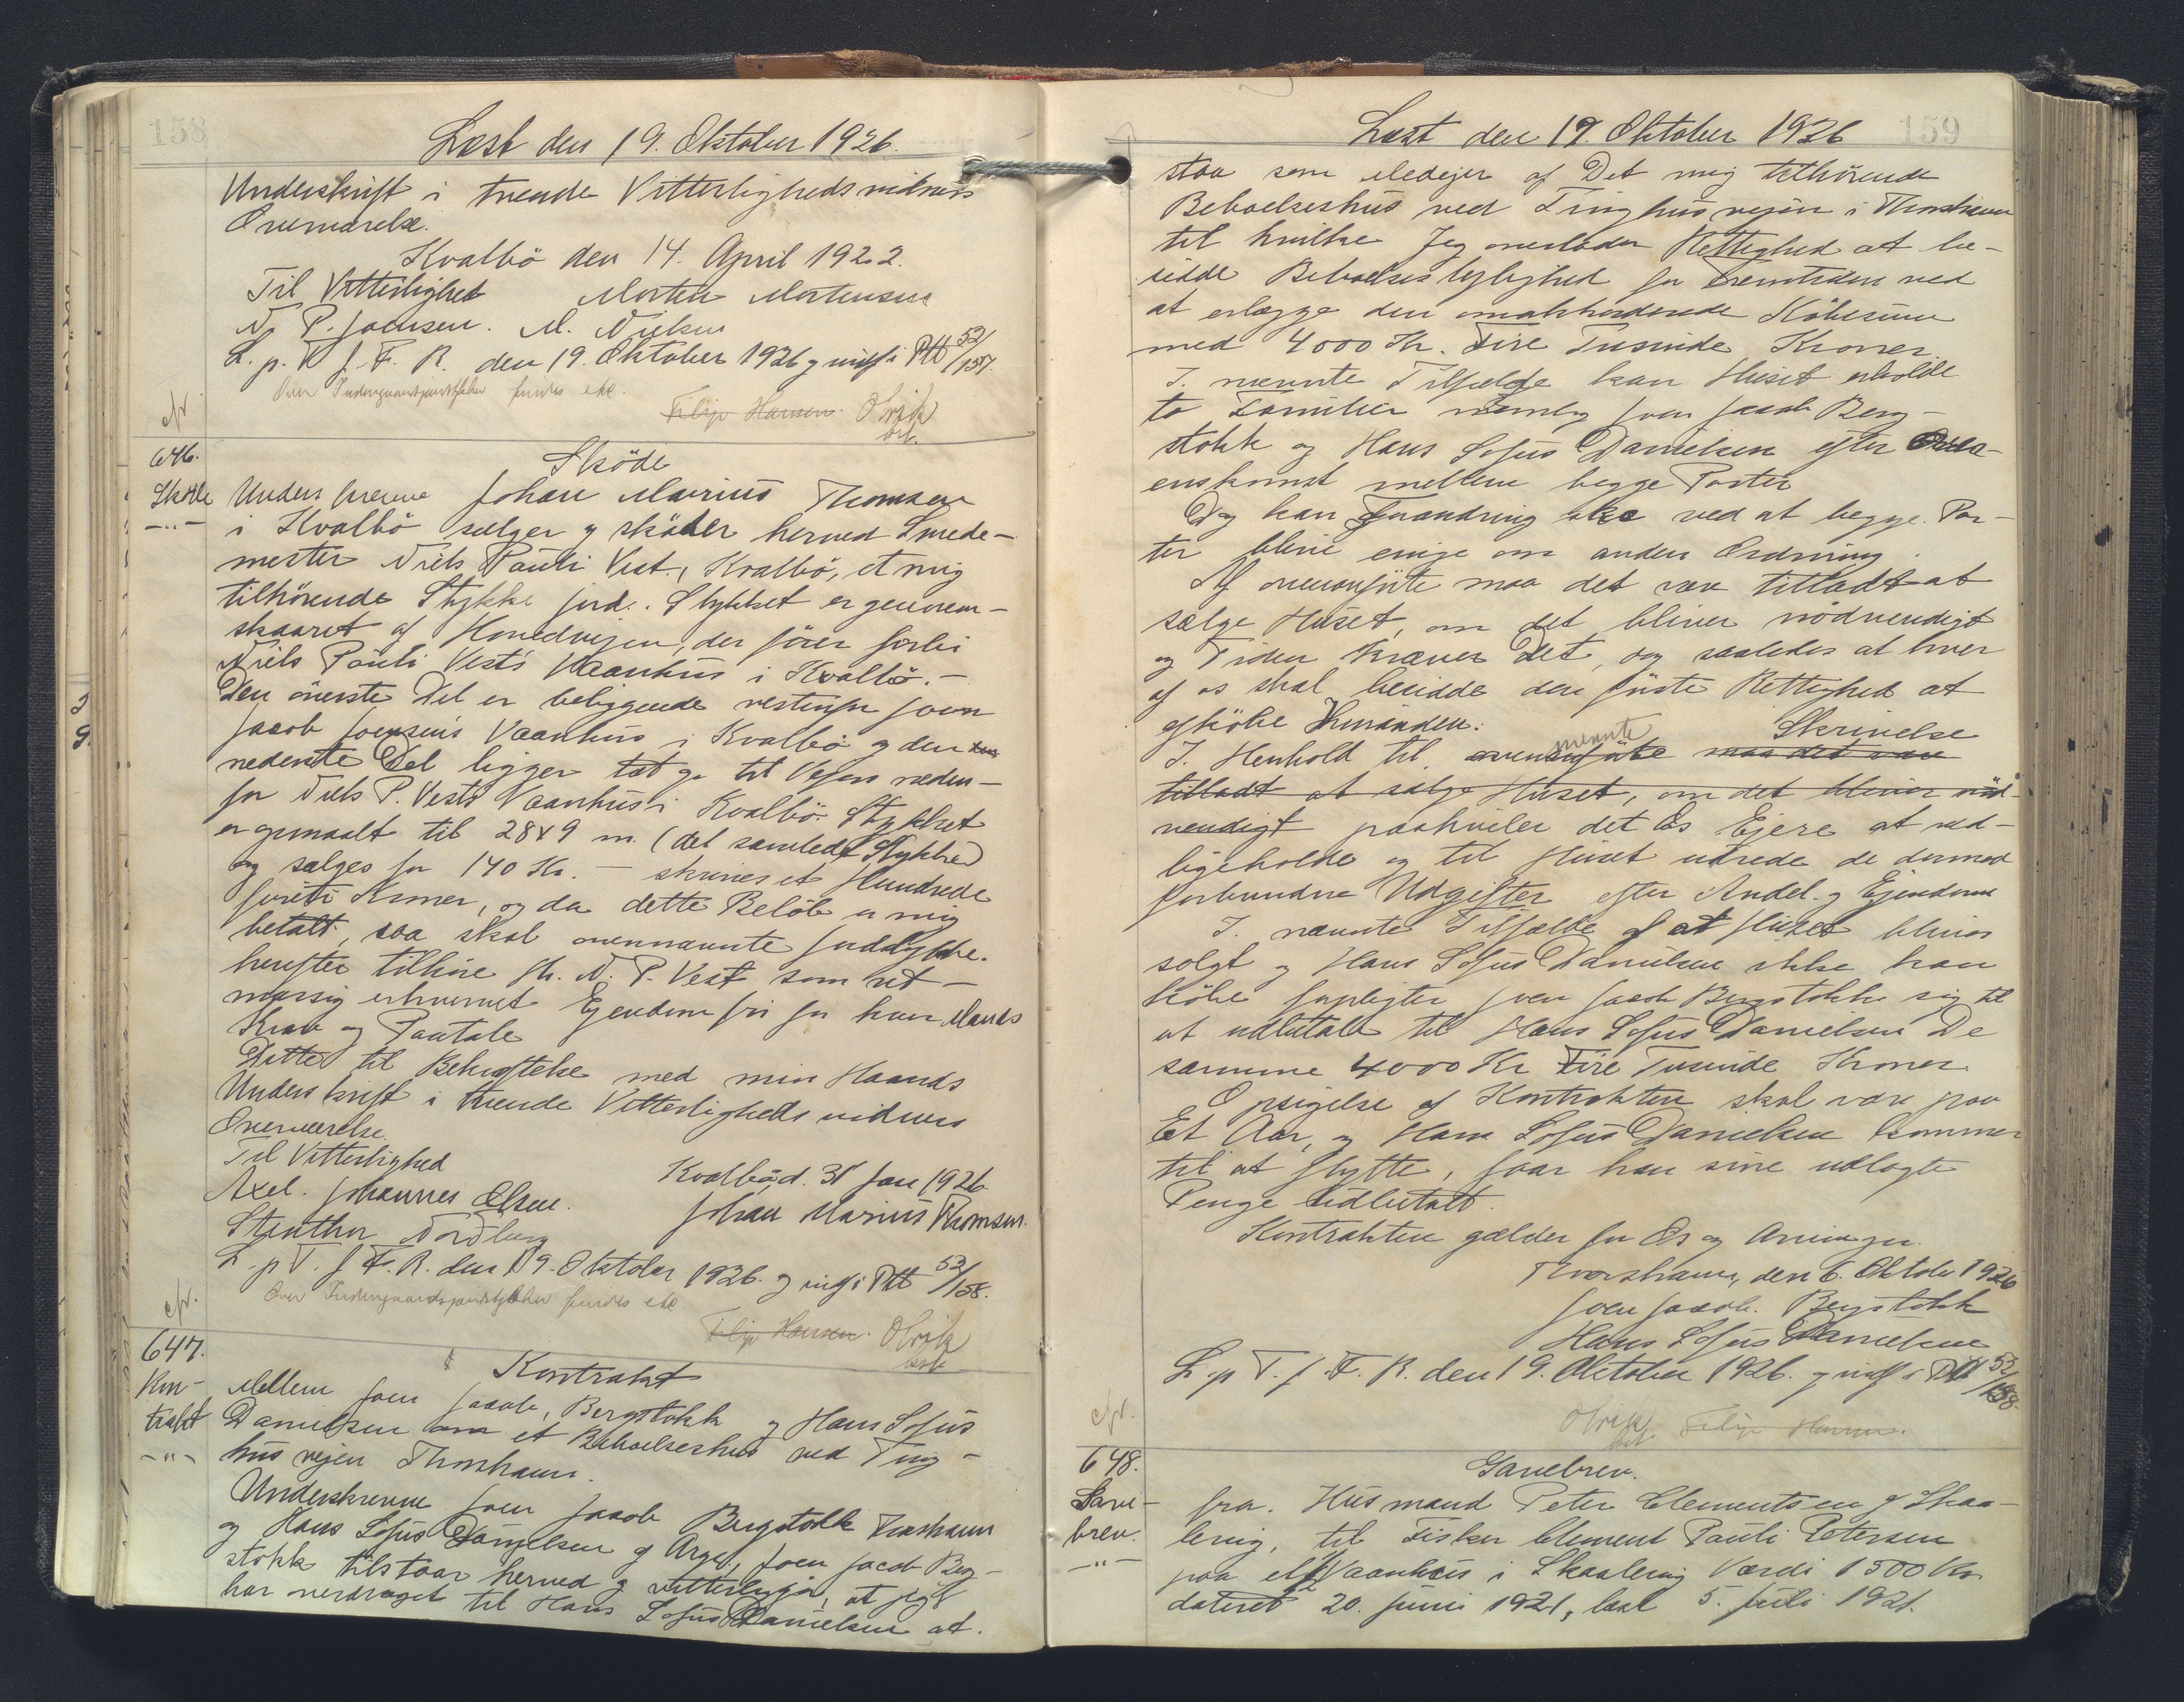 158
Læst den 19. Oktober 1926.
Underskrift i tvende Vitterlighedsvidners
Overværelse.
Kvalbö den 14. April 1922.
Til Vitterlighed Morten Mortensen
N. P. Joensen. M. Nielsen
L. p. T. f. F. R. den 19. Oktober 1926 og indf i Ptt 52/157.
cfr.
Filip Hansen. Olrik
cst.
646.
Sköde
Sköde
-"-
Underskrevne Johan Marius Thomsen
i Kvalbö sælger og sköder herved Smede-
mester Niels Pauli Vest., Kvalbö, et mig
tilhörende Stykke jord. Stykket er gennem-
skaaret af Hovedvejen, der förer forbi
Niels Pauli Vest's Vaanhus i Kvalbö.-
Den överste Del er beliggende vestenfor Joen
Jacob Joensens Vaanhus i Kvalbö og den
nederste Del ligger tæt op til Vejen neden-
for Niels P. Vests Vaanhus i Kvalbö. Stykket
er opmaalt til 28x9 m. (det samlede Stykke)
og sælges for 140 Kr. - skriver et Hundrede
fyrreti Kroner, og da dette Belöb er mig
betalt, saa skal ovennævnte Jordstykke.
herefter tilhöre Hr. N. P. Vest som ret-
mæssig erhvervet Ejendom fri for hver Mands
Krav og Paatale
Dette til Bekræftelse med min Haands
Underskrift i tvende Vitterlighedsvidners
Overværelse.
Til Vitterlighed
Kvalbö, d. 31 Jan 1926
Axel. Johannes Olsen.
Johan Marius Thomsen.
Stenthor Nordberg
L. p T. f F. R. den 19. Oktober 1926. og indf i Ptt 52/158.
cfr.
Filip Hansen. Olrik
cst.
647.
Kon-
trakt
-"-
Kontrakt
Mellem Joen Jacob, Bergstokk og Hans Sofus
Danielsen om et Beboelseshus ved Ting-
hus vejen Thorshavn.
Underskrevne Joen Jacob Bergstokk Thorshavn
og Hans Sofus Danielsen af Arge., Joen Jacob Berg-
stokk tilstaar herved og vitterligjör, at jeg
har overdraget til Hans Sofus Danielsen at.
159
Læst den 19. Oktober 1926
staa som Medejer af Det mig tilhörende
Beboelseshus ved Tinghusvejen i Thorshavn
til hvilke Jeg overlader Rettighed at be-
sidde Beboelseslejlighed for Fremtiden ved
at erlægge den omakkorderede Köbesum
med 4000 Kr. Fire Tusinde Kroner.
I. nævnte Tilfælde kan Huset erholde
to Familier nemlig Joen Jacob Berg-
stokk og Hans Sofus Danielsen efter Over-
enskomst mellem begge Parter
Dog kan Forandring ske ved at begge. Par-
ter blive enige om anden Ordning.
Af ovenanförte maa det være tilladt at
sælge Huset, om det bliver nödvendigt
og Tiden kræver Det, dog saaledes at hver
af os skal besidde den förste Rettighed at
afköbe Hinanden.
I. Henhold til. nævnte Skrivelse
tilladt at sælge Huset, om det bliver nöd-
vendigt paahviler det Os Ejere at ved-
ligeholde og til Huset udrede de dermed
forbundne Udgifter efter Andel. og Ejendom
I. nævnte Tilfælde af at Huset bliver
solgt og Hans Sofus Danielsen ikke kan
köbe forpligter Joen Jacob Bergstokk sig til
at udbetale til Hans Sofus Danielsen De
samme 4000 Kr Fire Tusinde Kroner.
Opsigelse af Kontrakten skal være paa
Et Aar, og Hans Sofus Danielsen kommer
til at flytte, faar han sine udlagte
Penge udbetalt.
Kontrakten gælder for Os og Arvinger.
Thorshavn, den 6. Oktober 1926
Joen Jacob. Bergstokk
Hans Sofus Danielsen
L. p T. f. F. R. den 19. Oktober 1926. og indf i Ptt 52/158.
cfr.
Olrik Filip Hansen.
cst.
648.
Gave-
brev.
-"-
Gavebrev.
fra. Husmand Peter Clementsen af Skaa-
levig, til Fisker Clement Pauli Petersen
paa et Vaanhus i Skaalevig Værdi 1500 Kr.
dateret 20. Juni 1921, læst 5. Juli 1921.